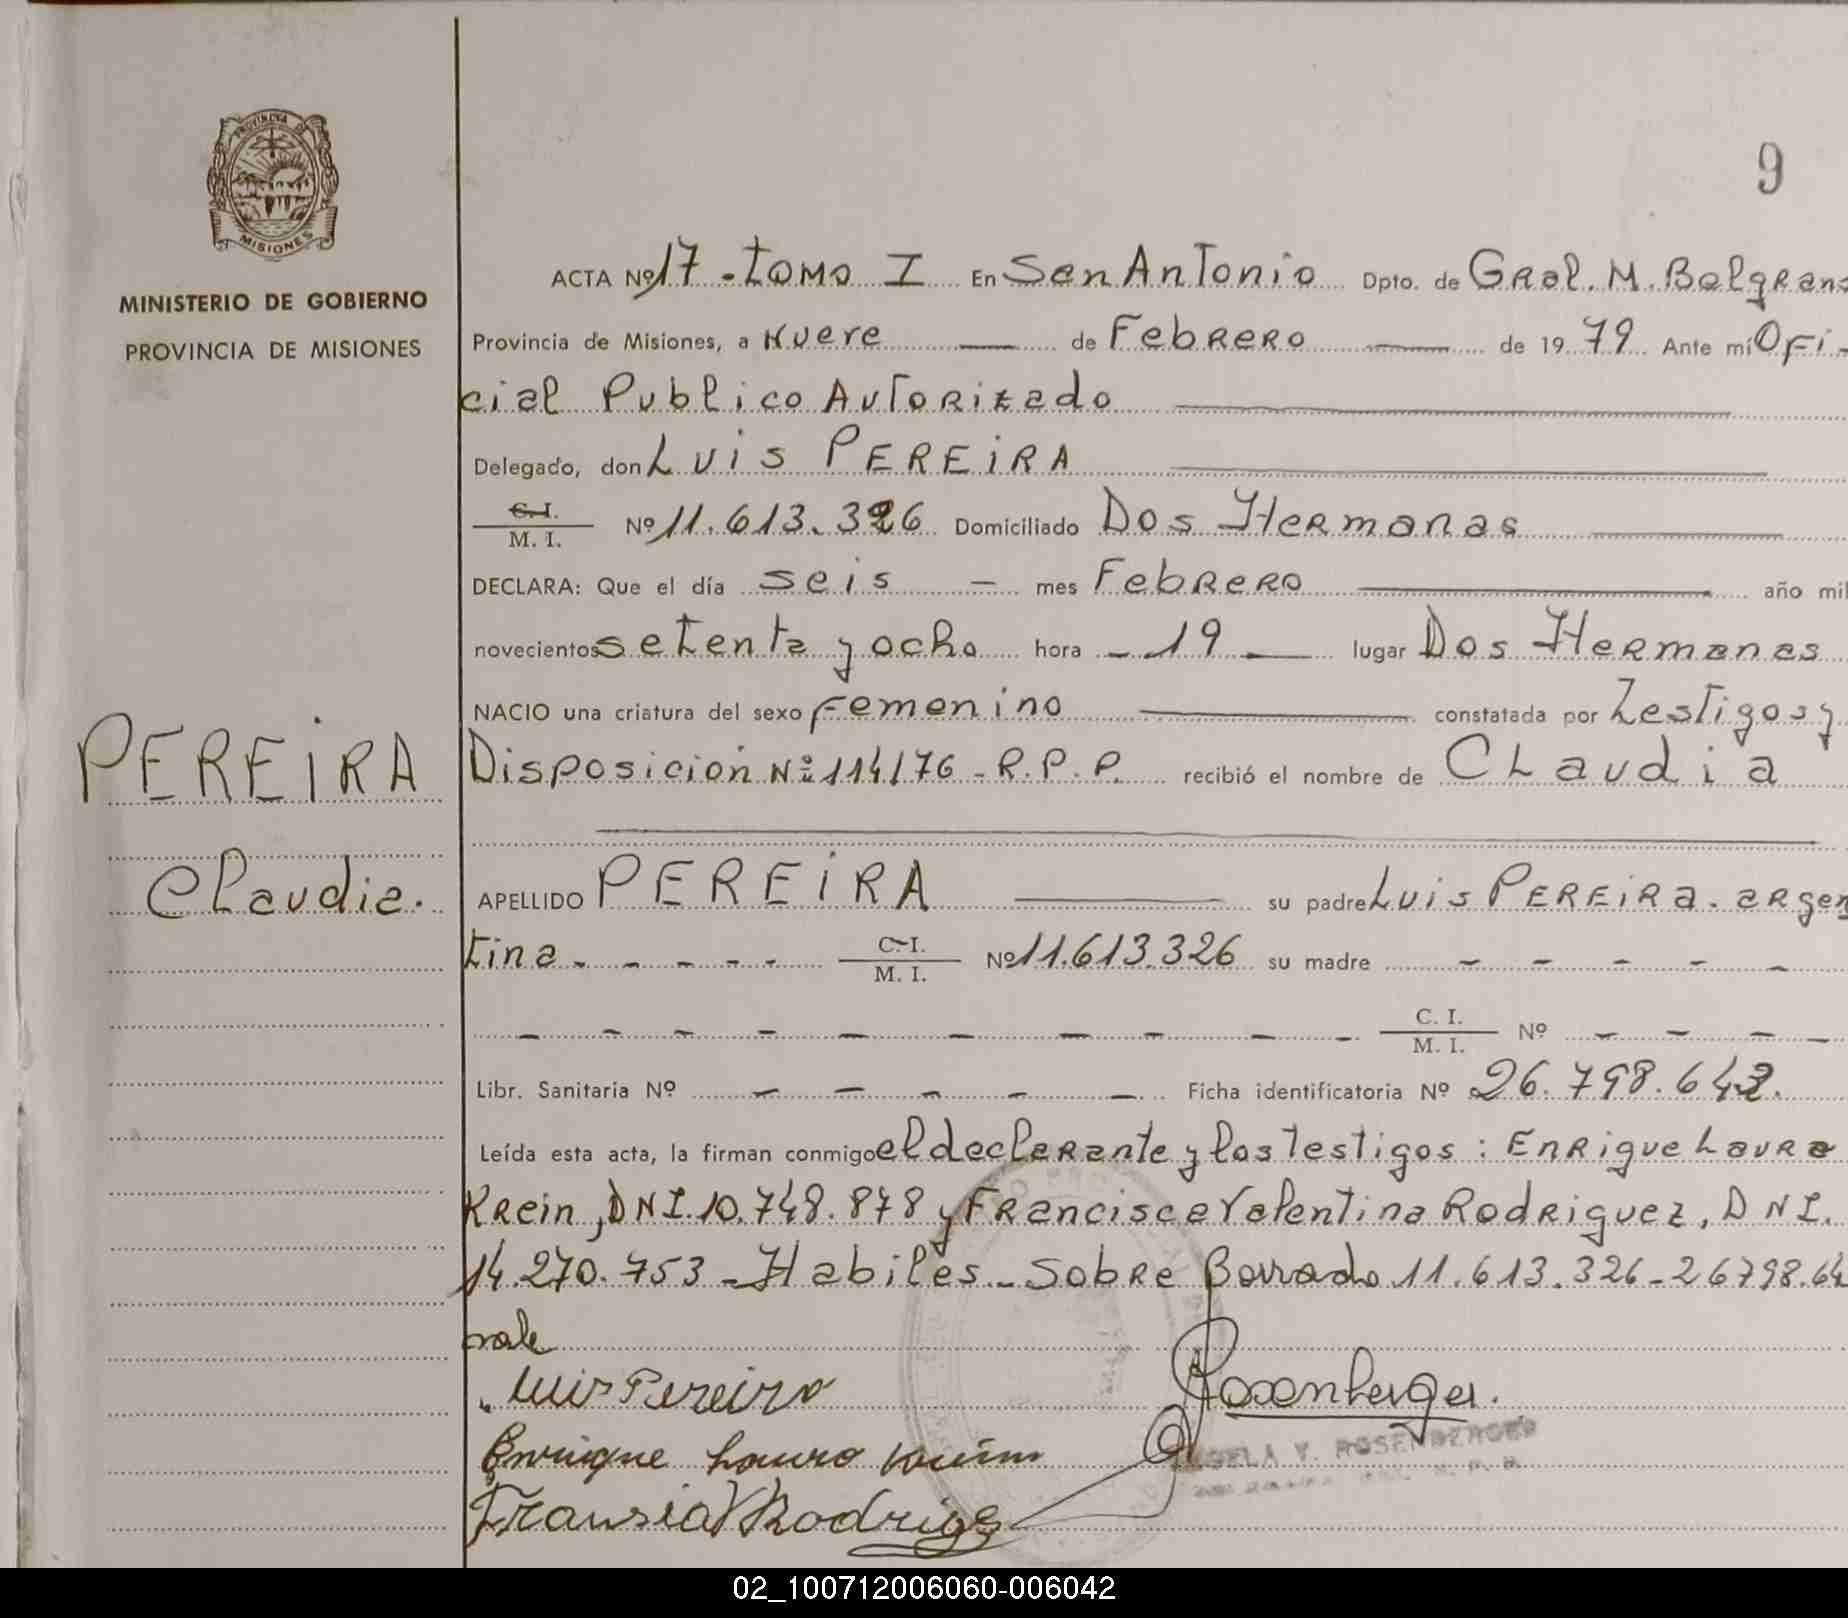 PROVINCIA DE
MISIONES
MINISTERIO DE GOBIERNO
PROVINCIA DE MISIONES
9
ACTA Nº 17 - tomo I En San Antonio Dpto. de Gral. M. Belgrano
Provincia de Misiones, a Nueve — de Febrero — de 1979 Ante mí Ofi-
cial Publico Autorizado
Delegado, don Luis PEREIRA
C.I.
M. I. Nº 11.613.326 Domiciliado Dos Hermanas
DECLARA: Que el día seis - mes Febrero año mil
novecientos setenta y ocho hora - 19 - lugar Dos Hermanas
NACIO una criatura del sexo Femenino constatada por Testigos y
Disposicion Nº 114/76 - R.P.P. recibió el nombre de Claudia
PEREIRA
Claudia.
APELLIDO PEREIRA su padre Luis PEREIRA. argen
tina - - - - - C.I.
M. I. Nº 11.613.326 su madre - - - - -
- - - - - - - - - - C. I.
M. I. Nº - - - -
Libr. Sanitaria Nº - - - - - Ficha identificatoria Nº 26.798.642.
Leída esta acta, la firman conmigo el declarante y los testigos: Enrique Lauro
Krein, DNI. 10.748.878 y Francisca Valentina Rodriguez, DNI.
14.270.753 - Habiles - Sobre Borrado 11.613.326 - 26798.64
vale
Luis Pereira
Rosenberger.
Enrique Lauro Krein
ANGELA V. ROSENBERGER
02_100712006060-006042